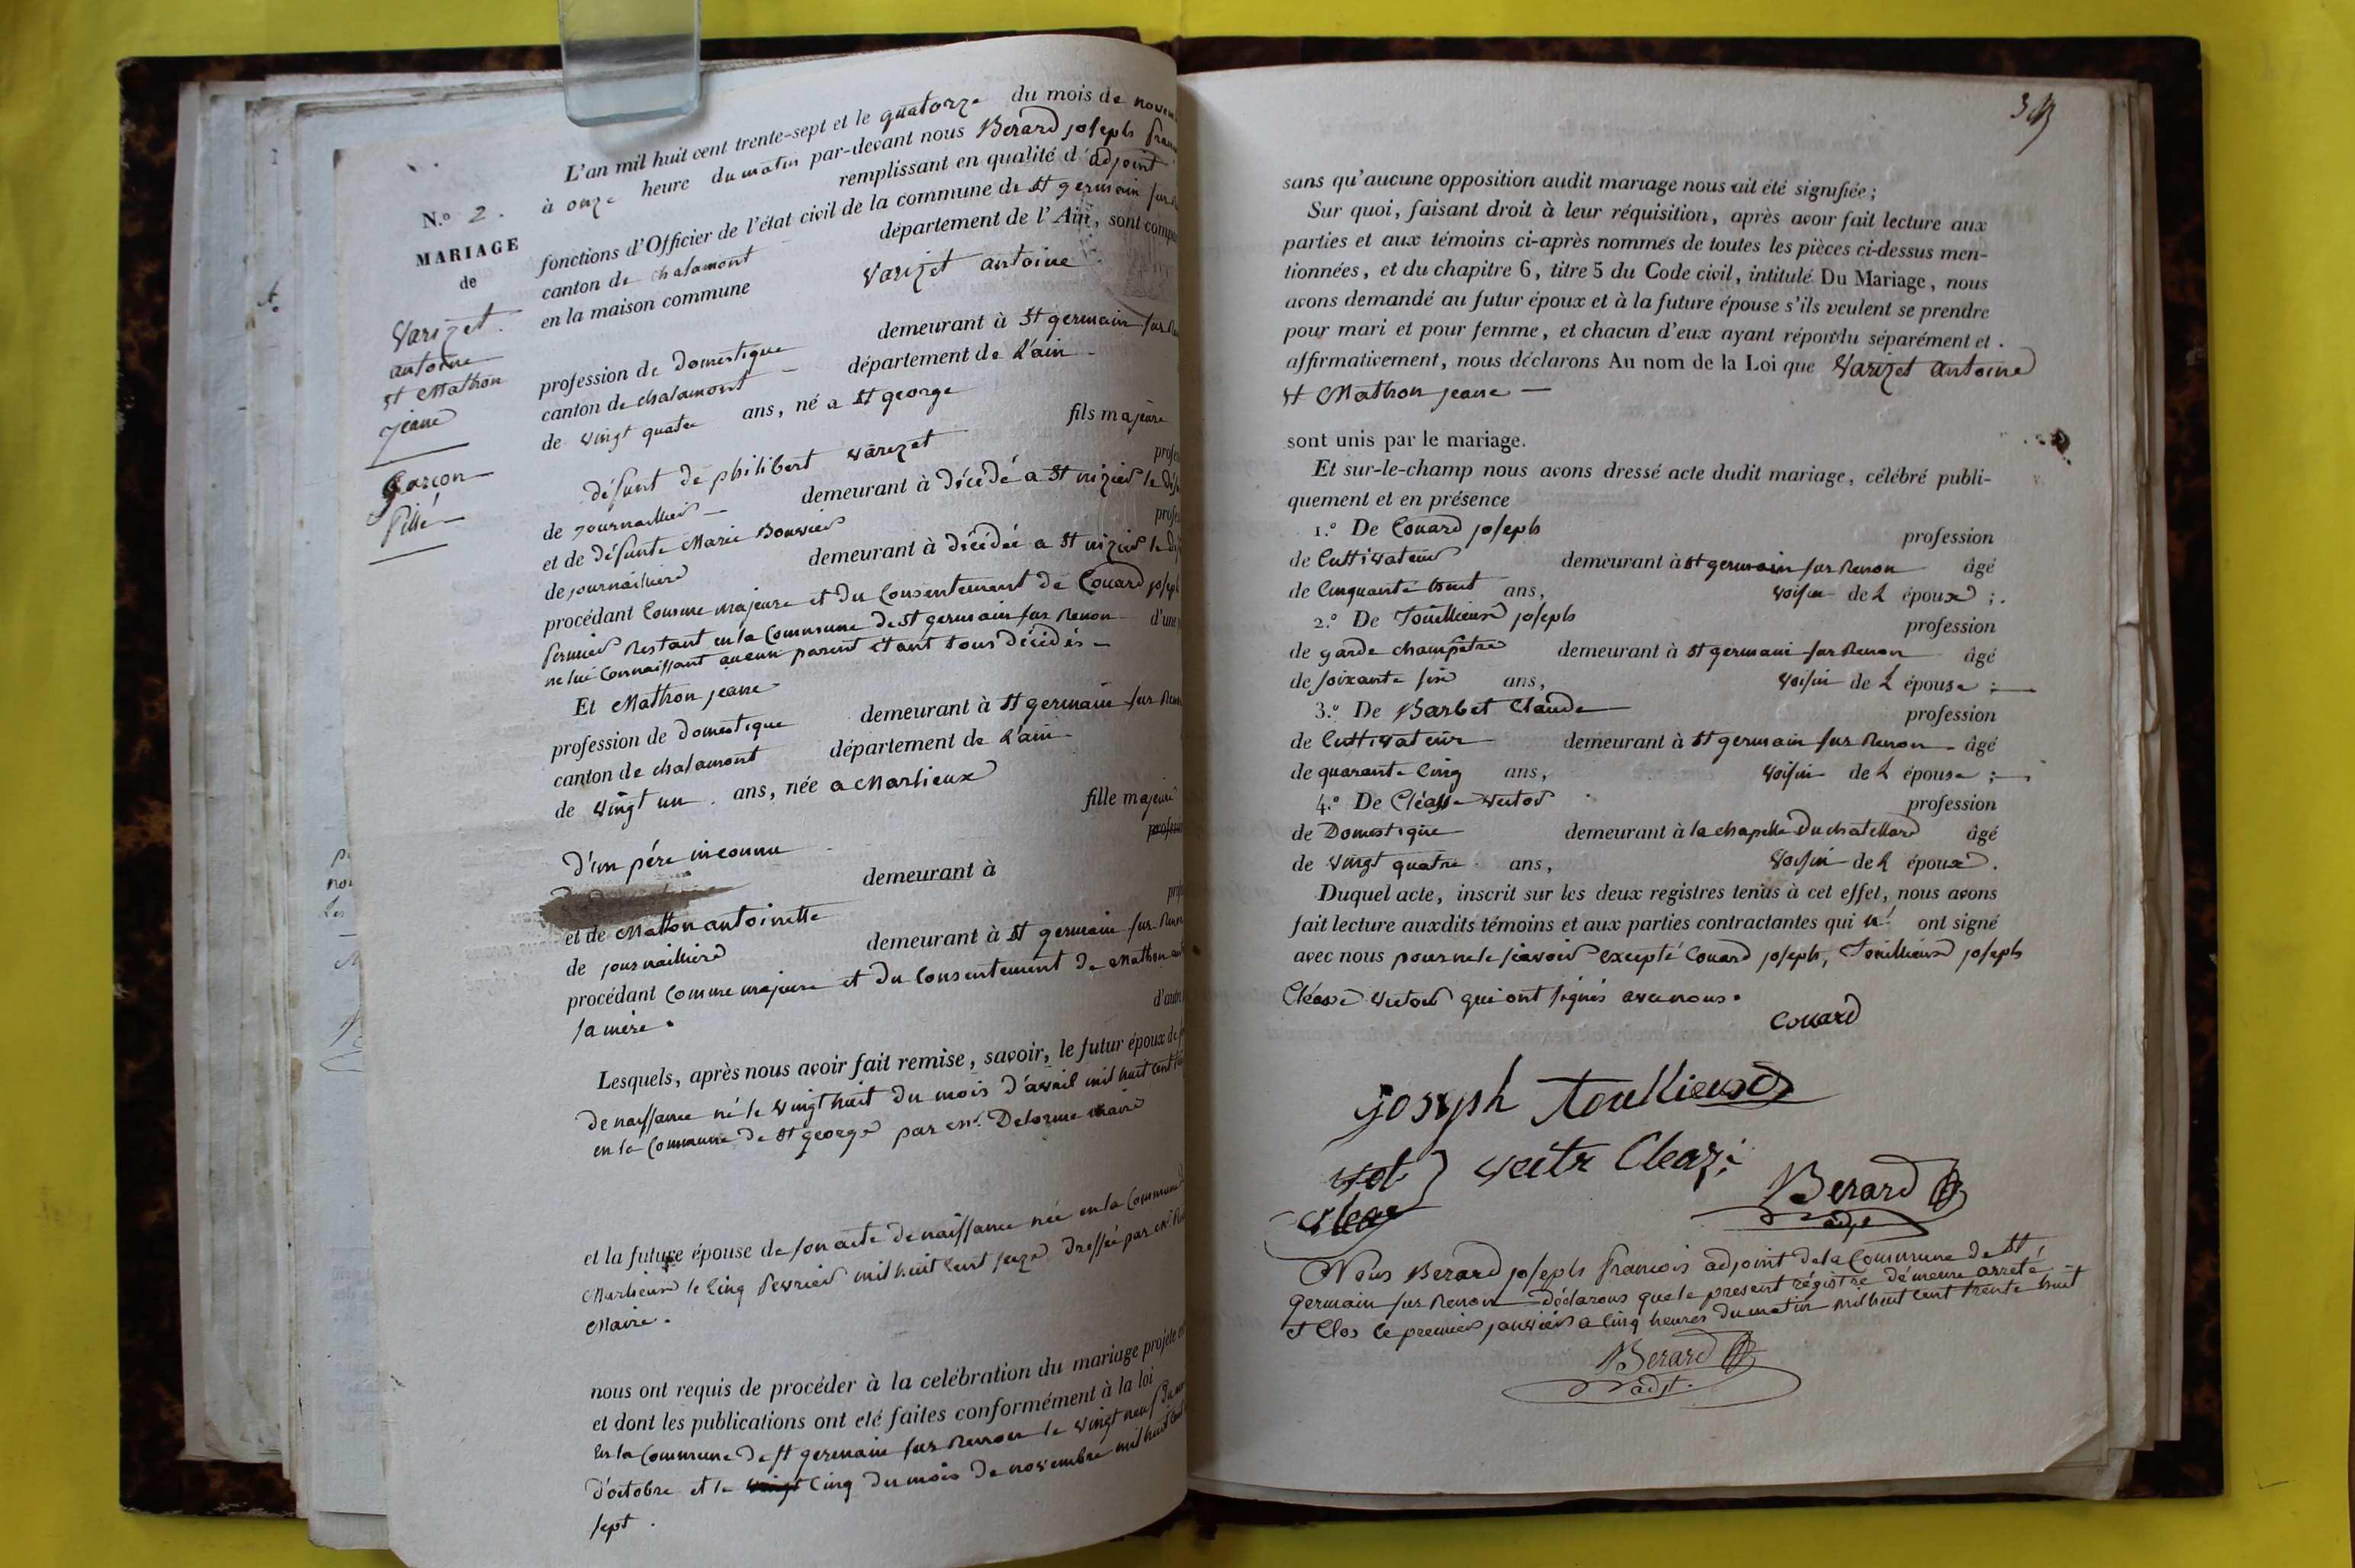 L'an mil huit cent trente-sept et le quatorze du mois de
N.º 2. à onze heure du matin par-devant nous Berard joseph
remplissant en qualité d'adjoint
MARIAGE
fonctions d'Officier de l'état civil de la commune de St germain sur
de
canton de chalamont département de l'Ain, sont
en la maison commune Varizet antoine
Varizet
antoine
et Mathon
jeane
garçon
fille
demeurant à St germain sur
profession de Domestique
canton de chalamont département de L'ain
de vingt quatre ans, né a St george
fils majeure
défunt de philibert varizet
de journallier demeurant à décédé a St nizier le
et de défunte Marie Bouvier
de journallière demeurant à décédée a St nizier le
procédant Comme majeure et du Consentement de Couard joseph
fermier Restant en la Commune de St germain sur Renon d'une
ne lui Connaissant aucun parent étant tous décédés
Et Mathon jeane
profession de domestique demeurant à St germain sur
canton de chalamont département de L'ain
de vingt un ans, née a Marlieux
fille majeure
d'un père inconnu
demeurant à
et de Matton antoinette
de journaillière demeurant à St germain sur
procédant Comme majeure et du Consentement de Mathon
sa mère.
Lesquels, après nous avoir fait remise, savoir, le futur époux de
de naissance né le vingt huit du mois d'avril mil huit cent
en la Commune de St george par mr. Delorme maire
et la future épouse de son acte de naissance née en la Commune
Marlieux le Cinq fevrier mil huit Cent seize dressée par mr
Maire.
nous ont requis de procéder à la celébration du mariage projeté
et dont les publications ont eté faites conformément à la loi
En la Commune de St germain sur Renon le vingt neuf du
d'octobre et le Cinq du mois de novembre mil huit Cent
sept.
sans qu'aucune opposition audit mariage nous ait été signifiée;
Sur quoi, faisant droit à leur réquisition, après avoir fait lecture aux
parties et aux témoins ci-après nommés de toutes les pièces ci-dessus men-
tionnées, et du chapitre 6, titre 5 du Code civil, intitulé Du Mariage, nous
avons demandé au futur époux et à la future épouse s'ils veulent se prendre
pour mari et pour femme, et chacun d'eux ayant répondu séparément et
affirmativement, nous déclarons Au nom de la Loi que Varizet Antoine
et Mathon jeane
sont unis par le mariage.
Et sur-le-champ nous avons dressé acte dudit mariage, célébré publi-
quement et en présence
1.º De Couard joseph profession
de Cultivateur demeurant à St germain sur Renon âgé
de Cinquante huit ans, voisin de L époux;
2.º De Touillieux joseph profession
de garde champêtre demeurant à St germain sur Renon âgé
de soixante six ans, voisin de L épouse;
3.º De Barbet Claude profession
de Cultivateur demeurant à St germain sur Renon âgé
de quarante Cinq ans, voisin de L épouse;
4.º De profession
de Domestique demeurant à la chapelle Du chatellard âgé
de vingt quatre ans, voisin de L époux.
Duquel acte, inscrit sur les deux registres tenus à cet effet, nous avons
fait lecture auxdits témoins et aux parties contractantes qui n' ont signé
avec nous pour ne le sçavoir excepté Couard joseph, Touillieux joseph
qui ont signés avec nous.
Couard
joseph toullieux
Berard
adjt
Nous Berard joseph francois adjoint de la Commune de St
Germain sur Renon déclarons que le present régistre démeure arrété
et Clos le premier janvier a Cinq heures du matin mil huit Cent trente huit
Berard
adjt.